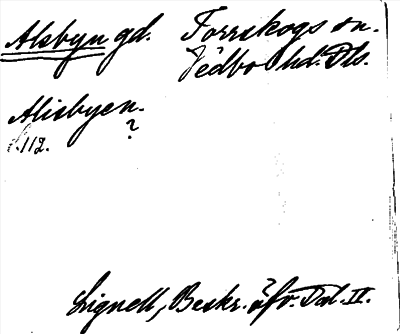 Alsbyn gd. Torrskogs sn.
Vedbo hd. Dls.
Alisbyen.
?
s. 112.
Lignell, Beskr. öfv. Dal. II.